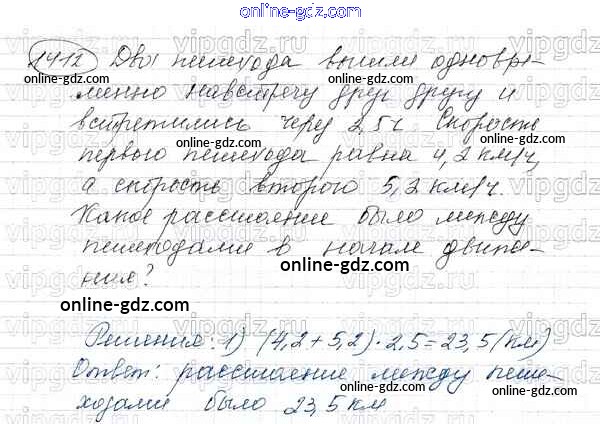 online-gdz.com
1412) Два пешехода вышли одновре-
менно навстречу друг другу и
встретились через 2,5ч. Скорость
первого пешехода равна 4,2 км/ч,
а скорость второго 5,2 км/ч.
Какое расстояние было между
пешеходами в начале движе-
ния?
Решения: 1) (4,2 + 5,2) · 2,5 = 23,5 (км)
Ответ: расстояние между пеше-
ходами было 23,5 км
online-gdz.com
online-gdz.com
online-gdz.com
online-gdz.com
online-gdz.com
online-gdz.com
online-gdz.com
online-gdz.com
online-gdz.com